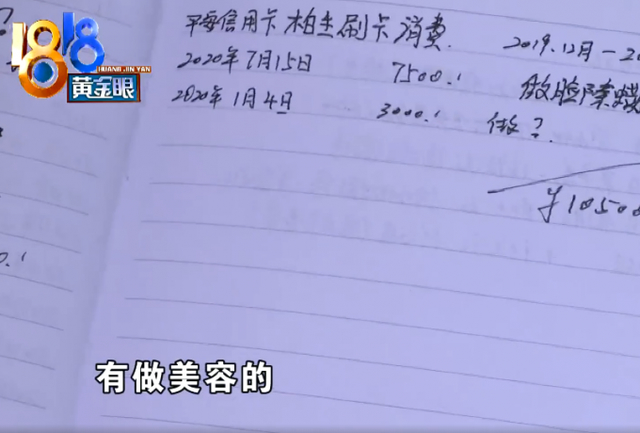 1818
HUANG JIN YAN
黄金眼
信用卡 柏杰刷卡消费
2020年7月15日 7500.!
2020年1月4日 3000.!
2019.12月-20
做脸
做?
¥1050
0.!
有做美容的